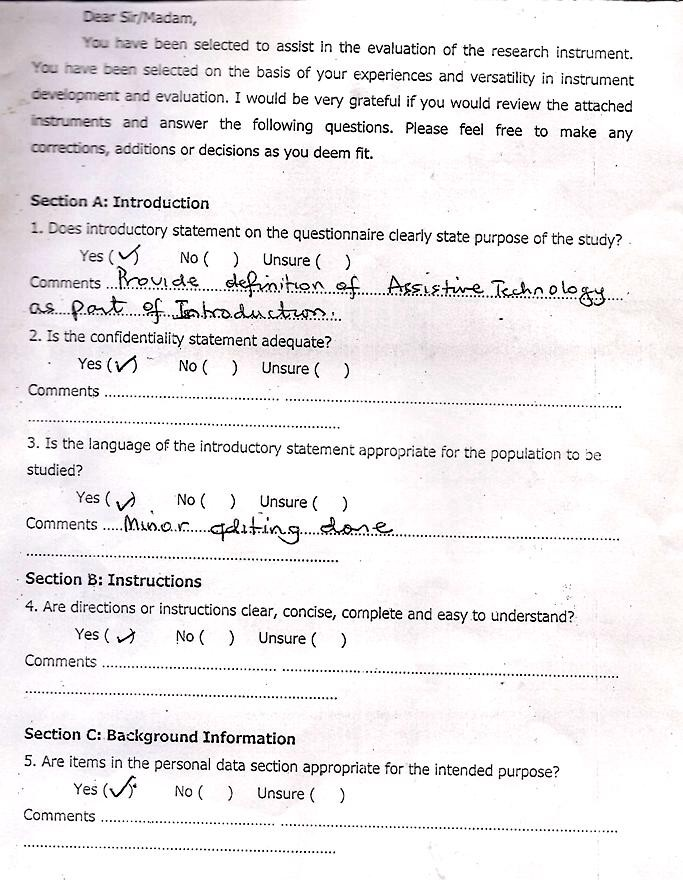 Dear Sir/Madam,
You have been selected to assist in the evaluation of the research instrument.
You have been selected on the basis of your experiences and versatility in instrument
development and evaluation. I would be very grateful if you would review the attached
instruments and answer the following questions. Please feel free to make any
corrections, additions or decisions as you deem fit.
Section A: Introduction
1. Does introductory statement on the questionnaire clearly state purpose of the study?
Yes (✓) No ( ) Unsure ( )
Comments ..Provide definition of Assistive Technology
as part of Introduction.
2. Is the confidentiality statement adequate?
Yes (✓) No ( ) Unsure ( )
Comments ....................................................
....................................................
3. Is the language of the introductory statement appropriate for the population to be
studied?
Yes (✓) No ( ) Unsure ( )
Comments .....Minor editing done
....................................................
Section B: Instructions
4. Are directions or instructions clear, concise, complete and easy to understand?
Yes (✓) No ( ) Unsure ( )
Comments ....................................................
....................................................
Section C: Background Information
5. Are items in the personal data section appropriate for the intended purpose?
Yes (✓) No ( ) Unsure ( )
Comments ....................................................
....................................................